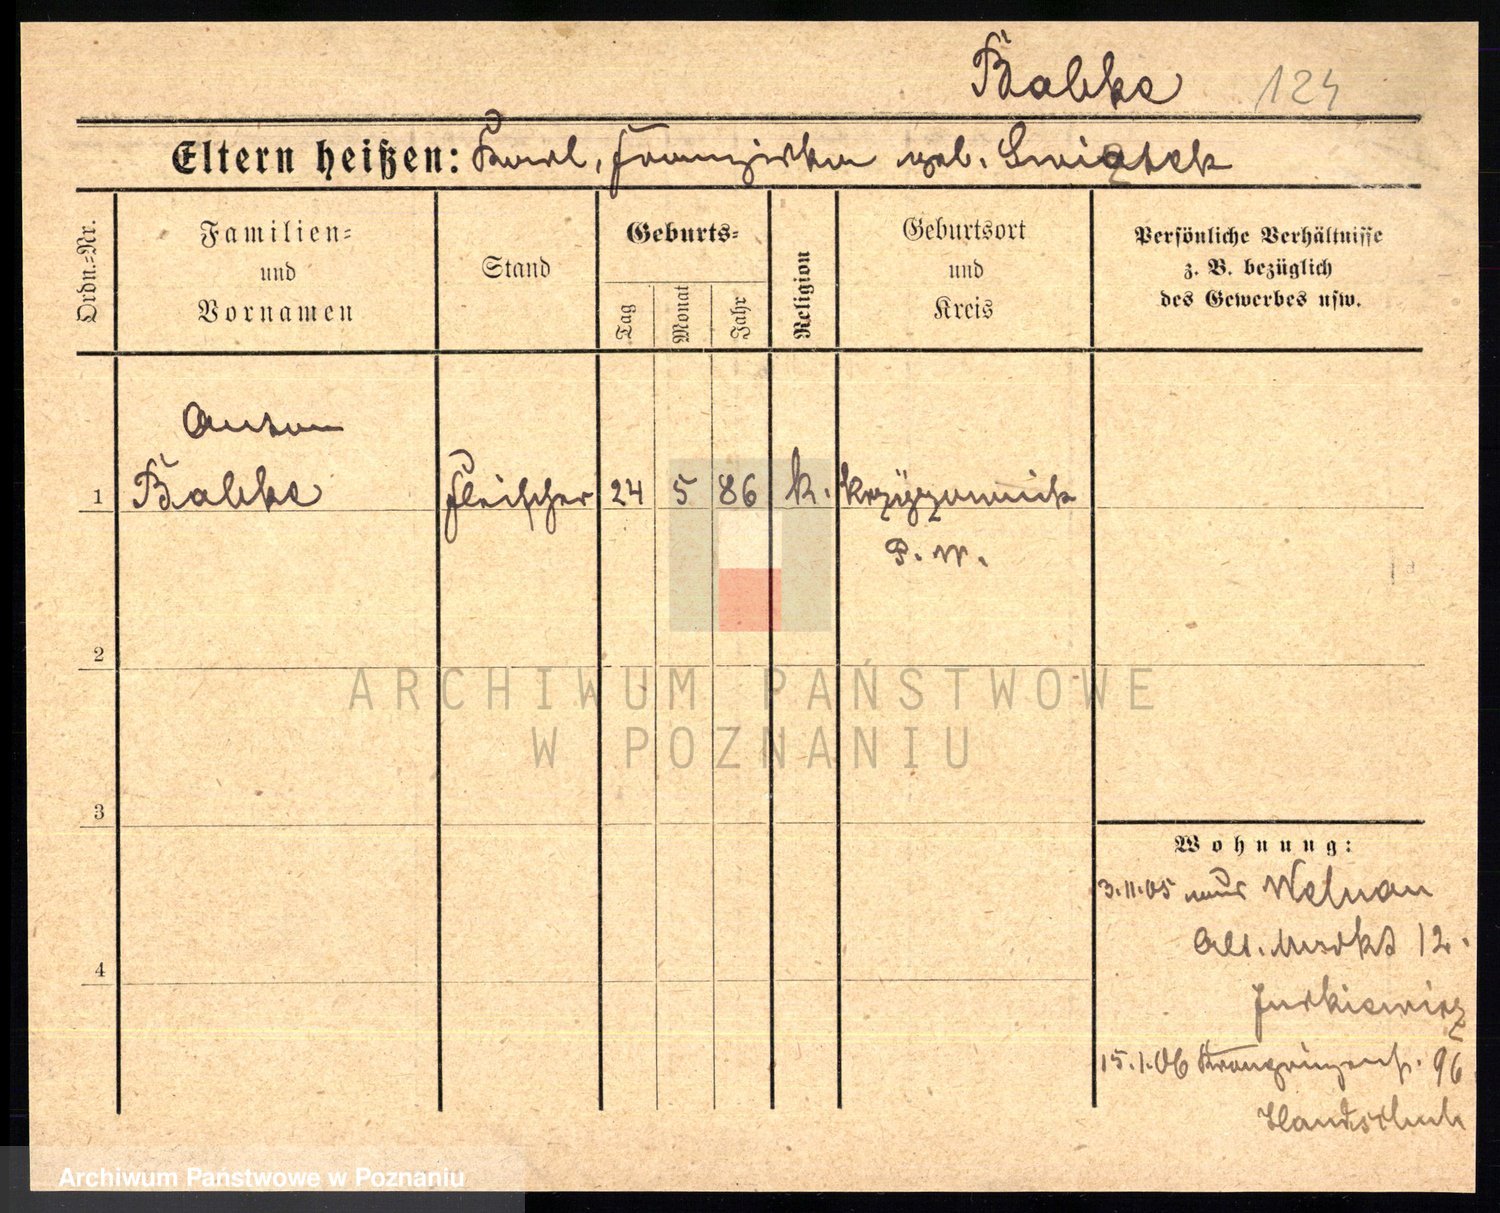 Babke 124
Eltern heißen: Karl, Franziska geb. Swiątek
Ordn.-Nr.
Familien- und Vornamen
Stand
Geburts-
Tag
Monat
Jahr
Religion
Geburtsort und Kreis
Persönliche Verhältnisse
z. B. bezüglich
des Gewerbes usw.
Anton
1 Babke Fleischer 24 5 86 k. Krzyżownik
P. W.
2
3
4
Wohnung:
3.11.05 aus Welnau
Alt. Markt 12.
Jurkiewicz
15.1.06 Kronprinzenst. 96
Handschuh
ARCHIWUM PAŃSTWOWE
W POZNANIU
Archiwum Państwowe w Poznaniu